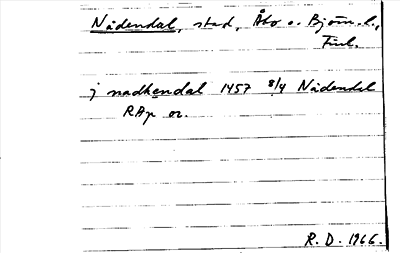 Nådendal, stad, Åbo o. Björn. l.,
Finl.
j nadhendal 1457 8/4 Nådendal
RAp or.
R. D. 1966.